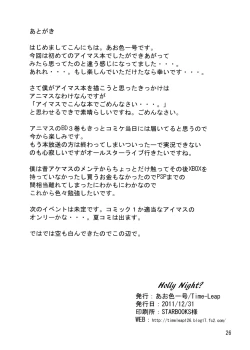 あとがき
はじめましてこんにちは。あお色一号です。
今回は初めてのアイマス本でしたができあがって
みたら思ってたのと違う感じになってました・・・。
あれれ・・・。もし楽しんでいただけたなら幸いです・・・。
さて僕がアイマス本を描こうと思ったきっかけは
アニマスなわけなんですが
「アイマスでこんな本でごめんなさい・・・。」
と自分でもできて素晴らしいですね。ごめんなさい。
アニマスのBD3巻もきっとコミケ当日には届いてると思うので
今から楽しみです。
もう本放送の方は終わってしまいついったーで実況できない
のも心寂しいですがオールスターライブ行きたいですね。
僕は昔アケマスのメンテからちょっとだけ触ってその後XBOXを
持っていなかったし買うお金もなかったのでPSPまでの
間相当離れてしまったにわかもにわかなので
これから色々勉強したいです。
次のイベントは未定です。コミック1か適当なアイマスの
オンリーかな・・・。夏コミは出ます。
ではでは空も白んできたのでこの辺で。
Holly Night?
発行：あお色一号/Time-Leap
発行日：2011/12/31
印刷所：STARBOOKS様
26